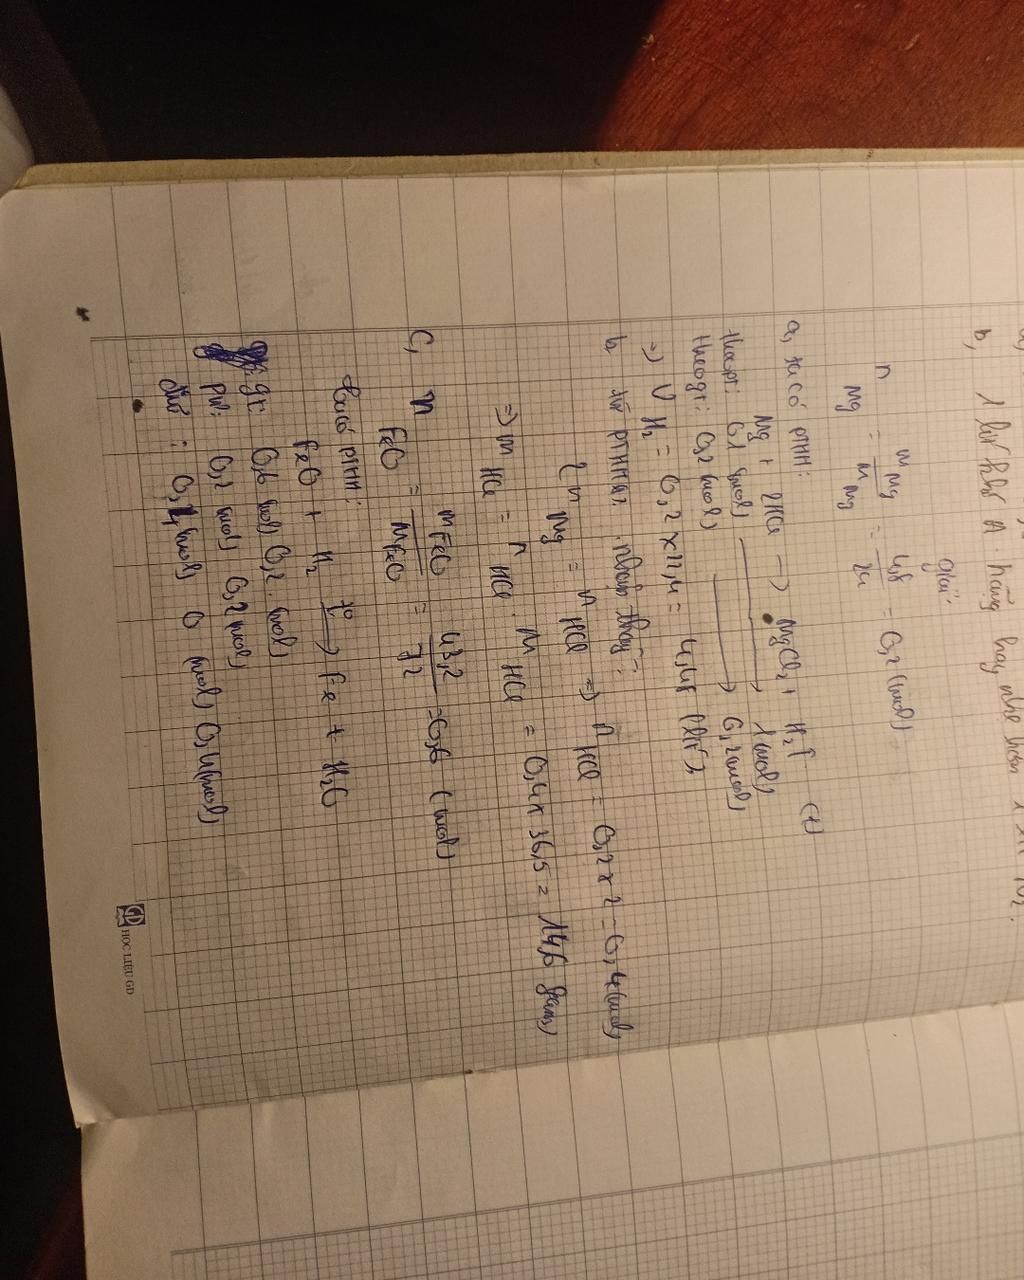 b, 1 lít hh A. nặng hay nhẹ hơn 1
giải:
n Mg = m Mg / M Mg = 4,8 / 24 = 0,2 (mol)
a, ta có PTHH:
Mg + 2HCl → MgCl2 + H2↑ (1)
theo pt: 0,1 (mol) → 1 (mol)
theo gt: 0,2 (mol) → 0,2 (mol)
=> V H2 = 0,2 x 22,4 = 4,48 (lít)
b, từ PTHH nhận thấy:
2 n Mg = n HCl => n HCl = 0,2 x 2 = 0,4 (mol)
=> m HCl = n HCl . M HCl = 0,4 x 36,5 = 14,6 gam)
C, n FeO = m FeO / M FeO = 43,2 / 72 = 0,6 (mol)
ta có PTHH:
FeO + H2 t° → Fe + H2O
gt: 0,6 (mol) 0,2 (mol)
PƯ: 0,2 (mol) 0,2 (mol)
dư : 0,4 (mol) 0 (mol) 0,4 (mol)
GD HỌC LIỆU GD